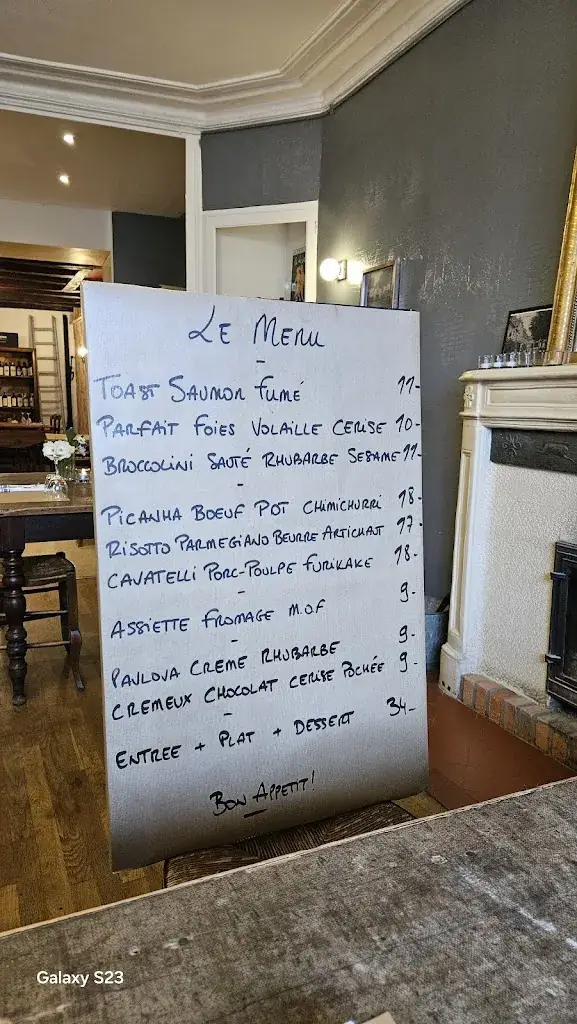 LE MENU
-
TOAST SAUMON FUMÉ 11-
PARFAIT FOIES VOLAILLE CERISE 10-
BROCCOLINI SAUTÉ RHUBARBE SESAME 11-
-
PICANHA BOEUF POT CHIMICHURRI 18-
RISOTTO PARMEGIANO BEURRE ARTICHAUT 17-
CAVATELLI PORC-POULPE FURIKAKE 18-
-
ASSIETTE FROMAGE M.O.F 9-
-
PAVLOVA CREME RHUBARBE 9-
CREMEUX CHOCOLAT CERISE POCHÉE 9-
-
ENTREE + PLAT + DESSERT 34-
BON APPETIT!
Galaxy S23